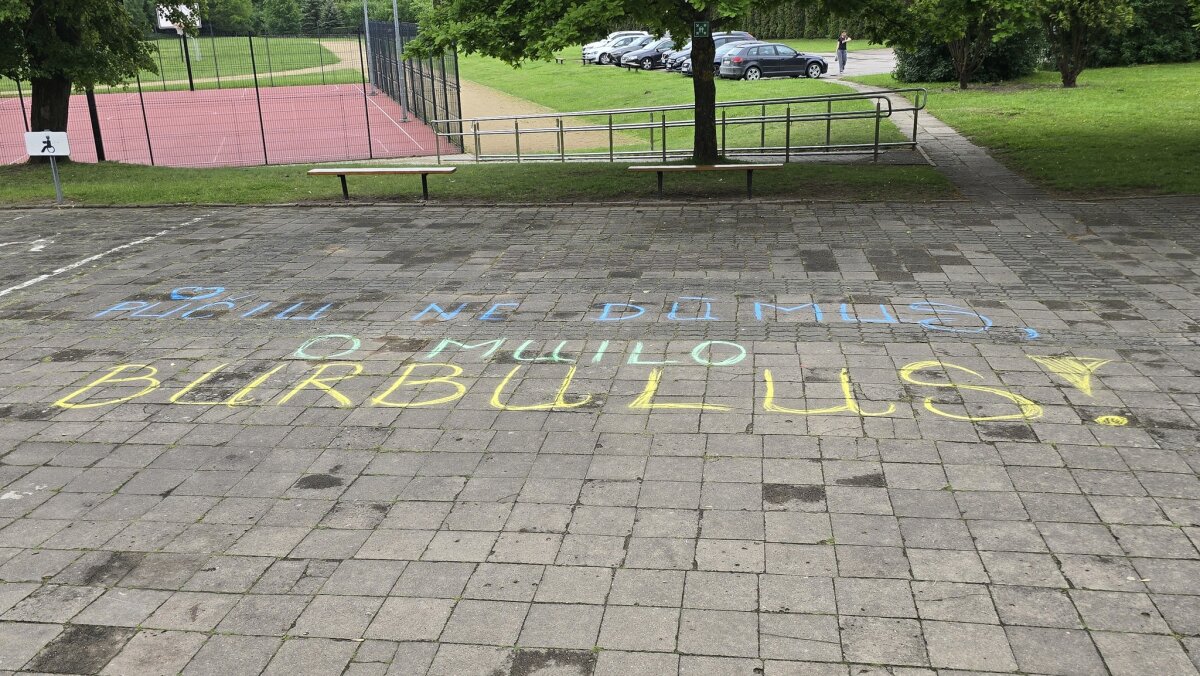 PUČIU NE DŪMUS,
O MUILO
BURBULUS!